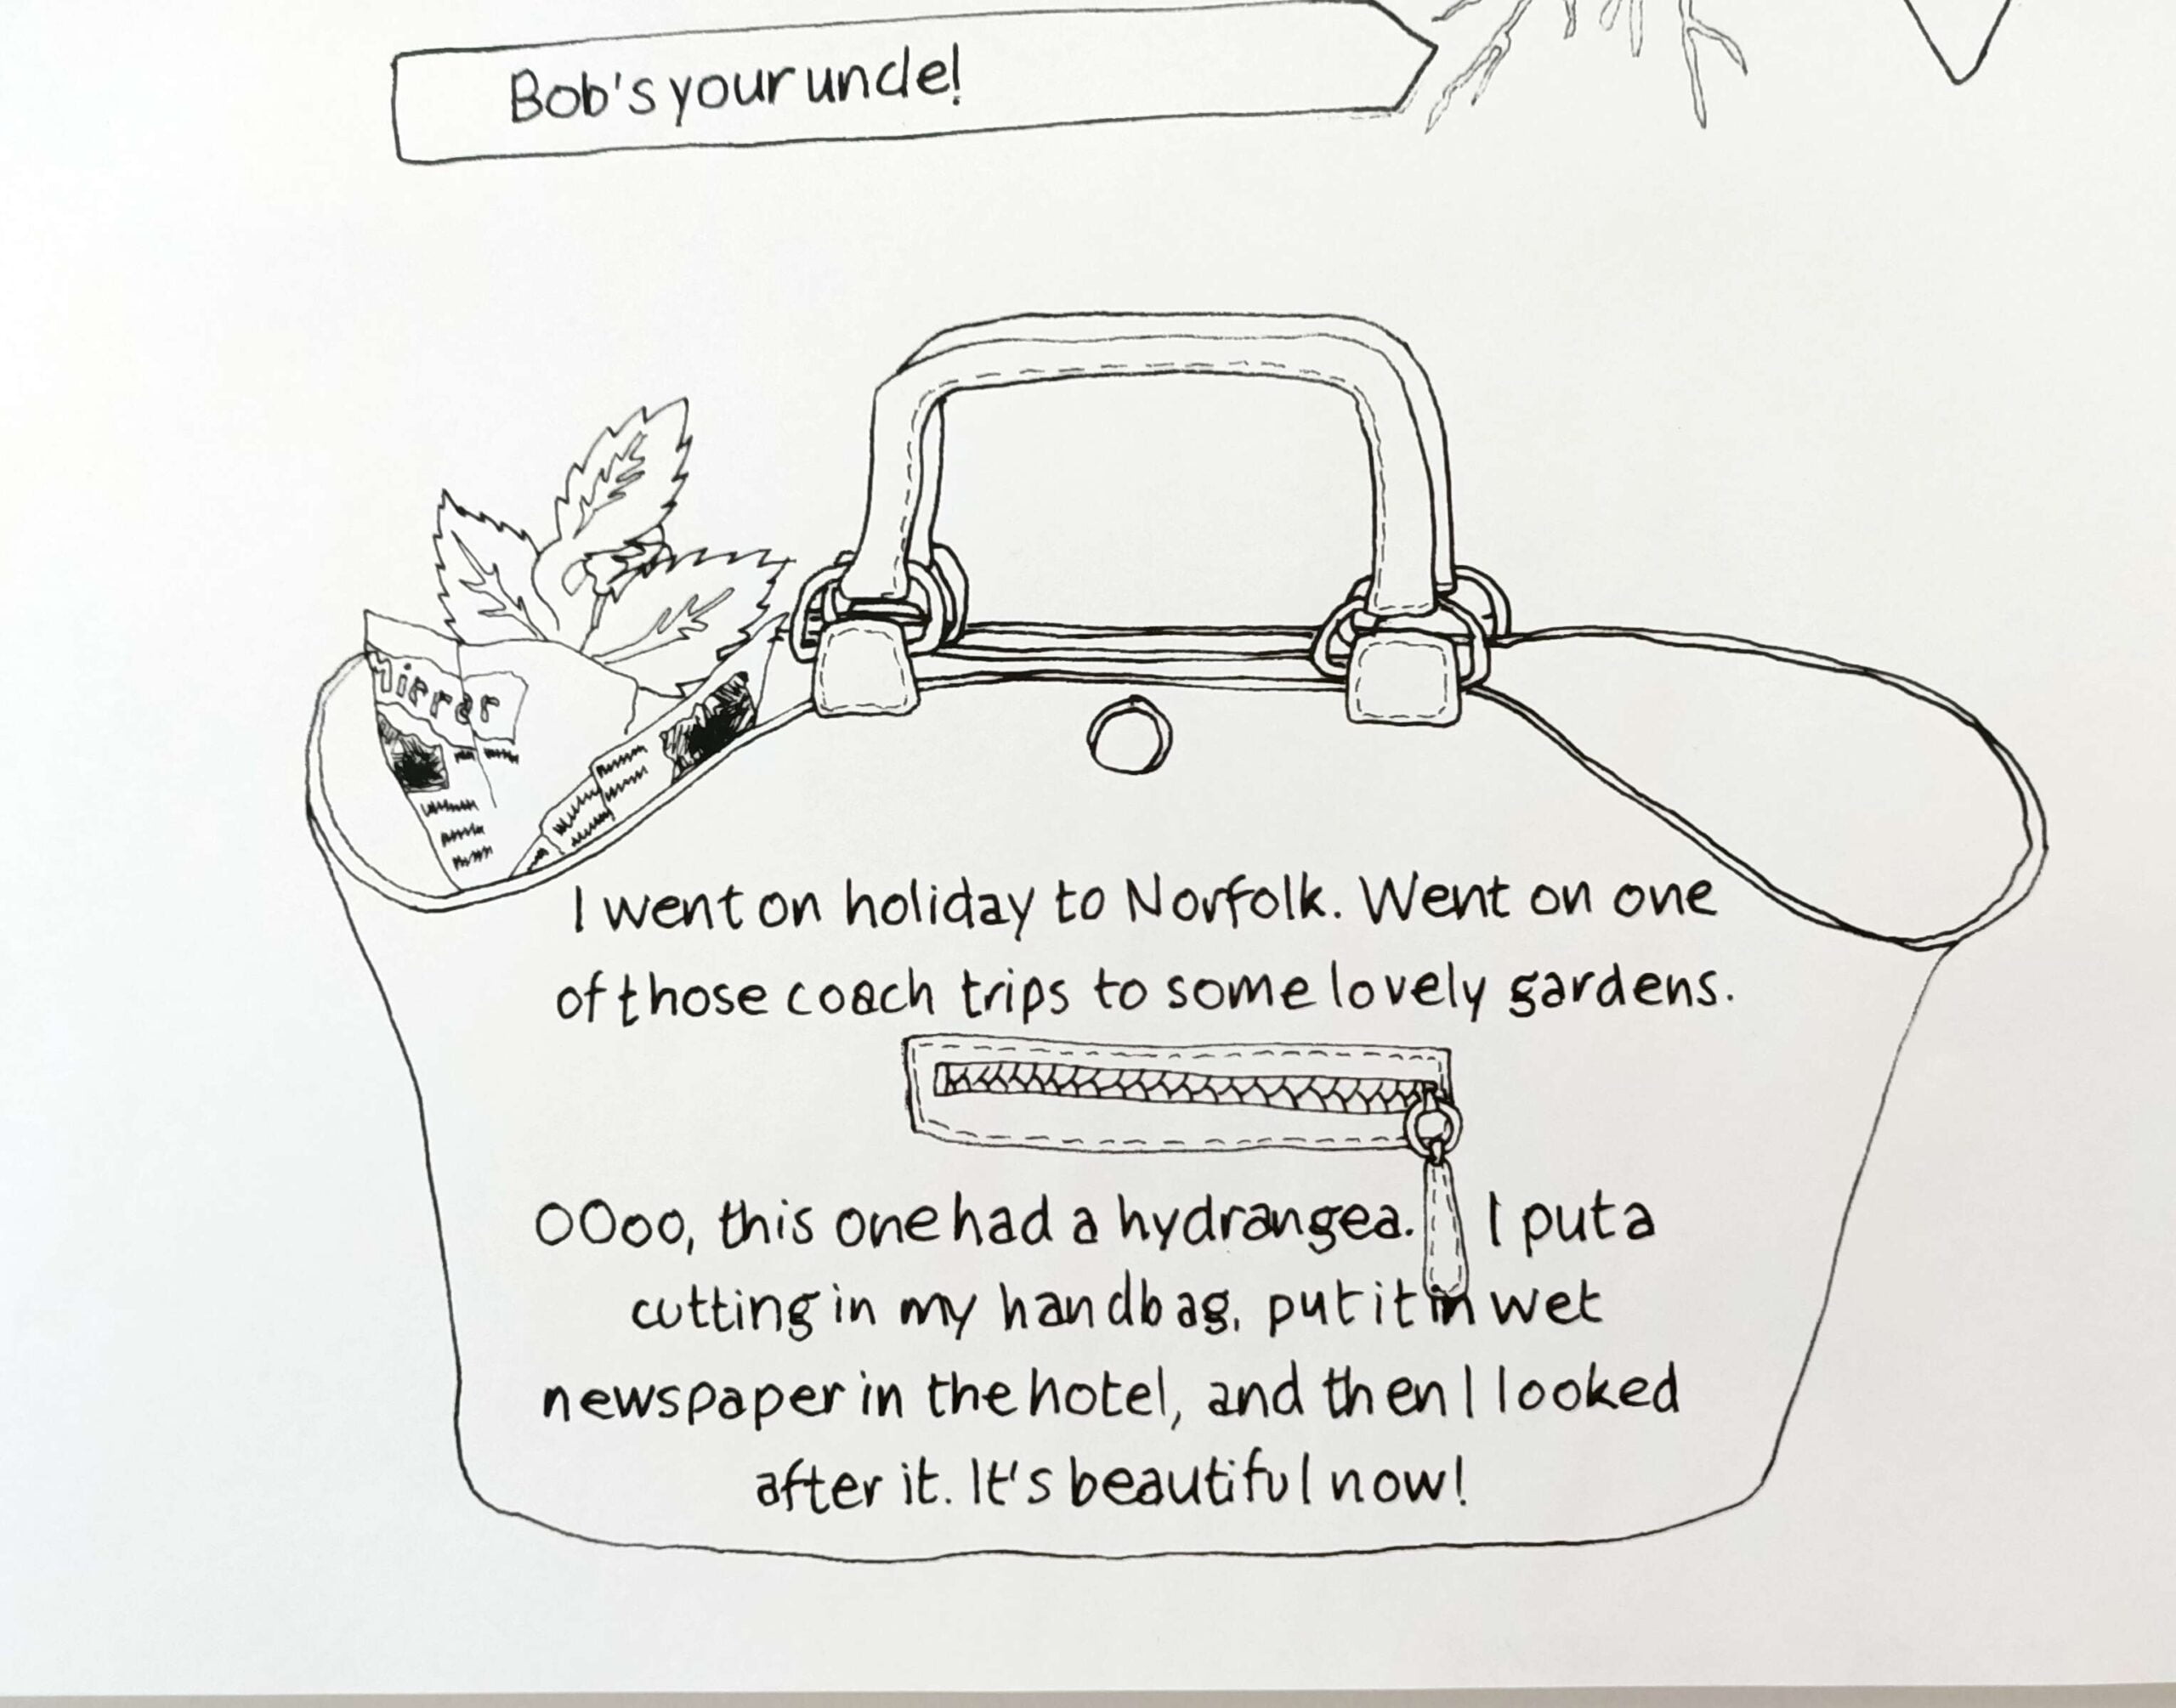 Bob's your uncle!
Mirror
I went on holiday to Norfolk. Went on one
of those coach trips to some lovely gardens.
OOoo, this one had a hydrangea. I put a
cutting in my handbag, put it in wet
newspaper in the hotel, and then I looked
after it. It's beautiful now!